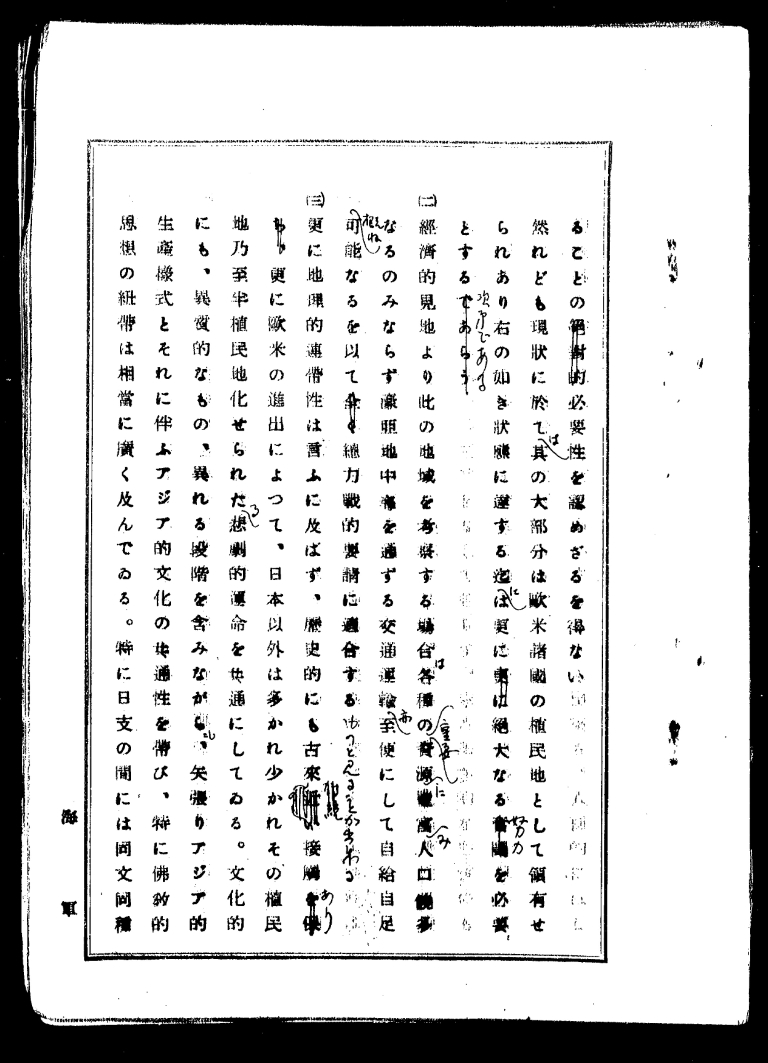 ることの絕對的必要性を認めざるを得ない
然れども現狀に於て其の大部分は歐米諸國の植民地として領有せ
られあり右の如き狀態に達する迄は更に絕大なる奮鬪を必要
とするであらう
次第である
努力
(二)經濟的見地より此の地域を考察する場合各種の資源豐富人口饒多
なるのみならず豪亞地中海を通ずる交通運輸至便にして自給自足
可能なるを以て總力戰的要請に適合するものと見ることが出來る
(三)更に地理的連帶性は言ふに及ばず、歷史的にも古來接觸
あり
更に歐米の進出によつて、日本以外は多かれ少かれその植民
地乃至半植民地化せられた悲劇的運命を共通にしてゐる。文化的
にも、異質的なもの、異れる段階を含みながら、矢張りアジア的
生產樣式とそれに伴ふアジア的文化の共通性を帶び、特に佛敎的
思想の紐帶は相當に廣く及んでゐる。特に日支の間には同文同種
海
軍